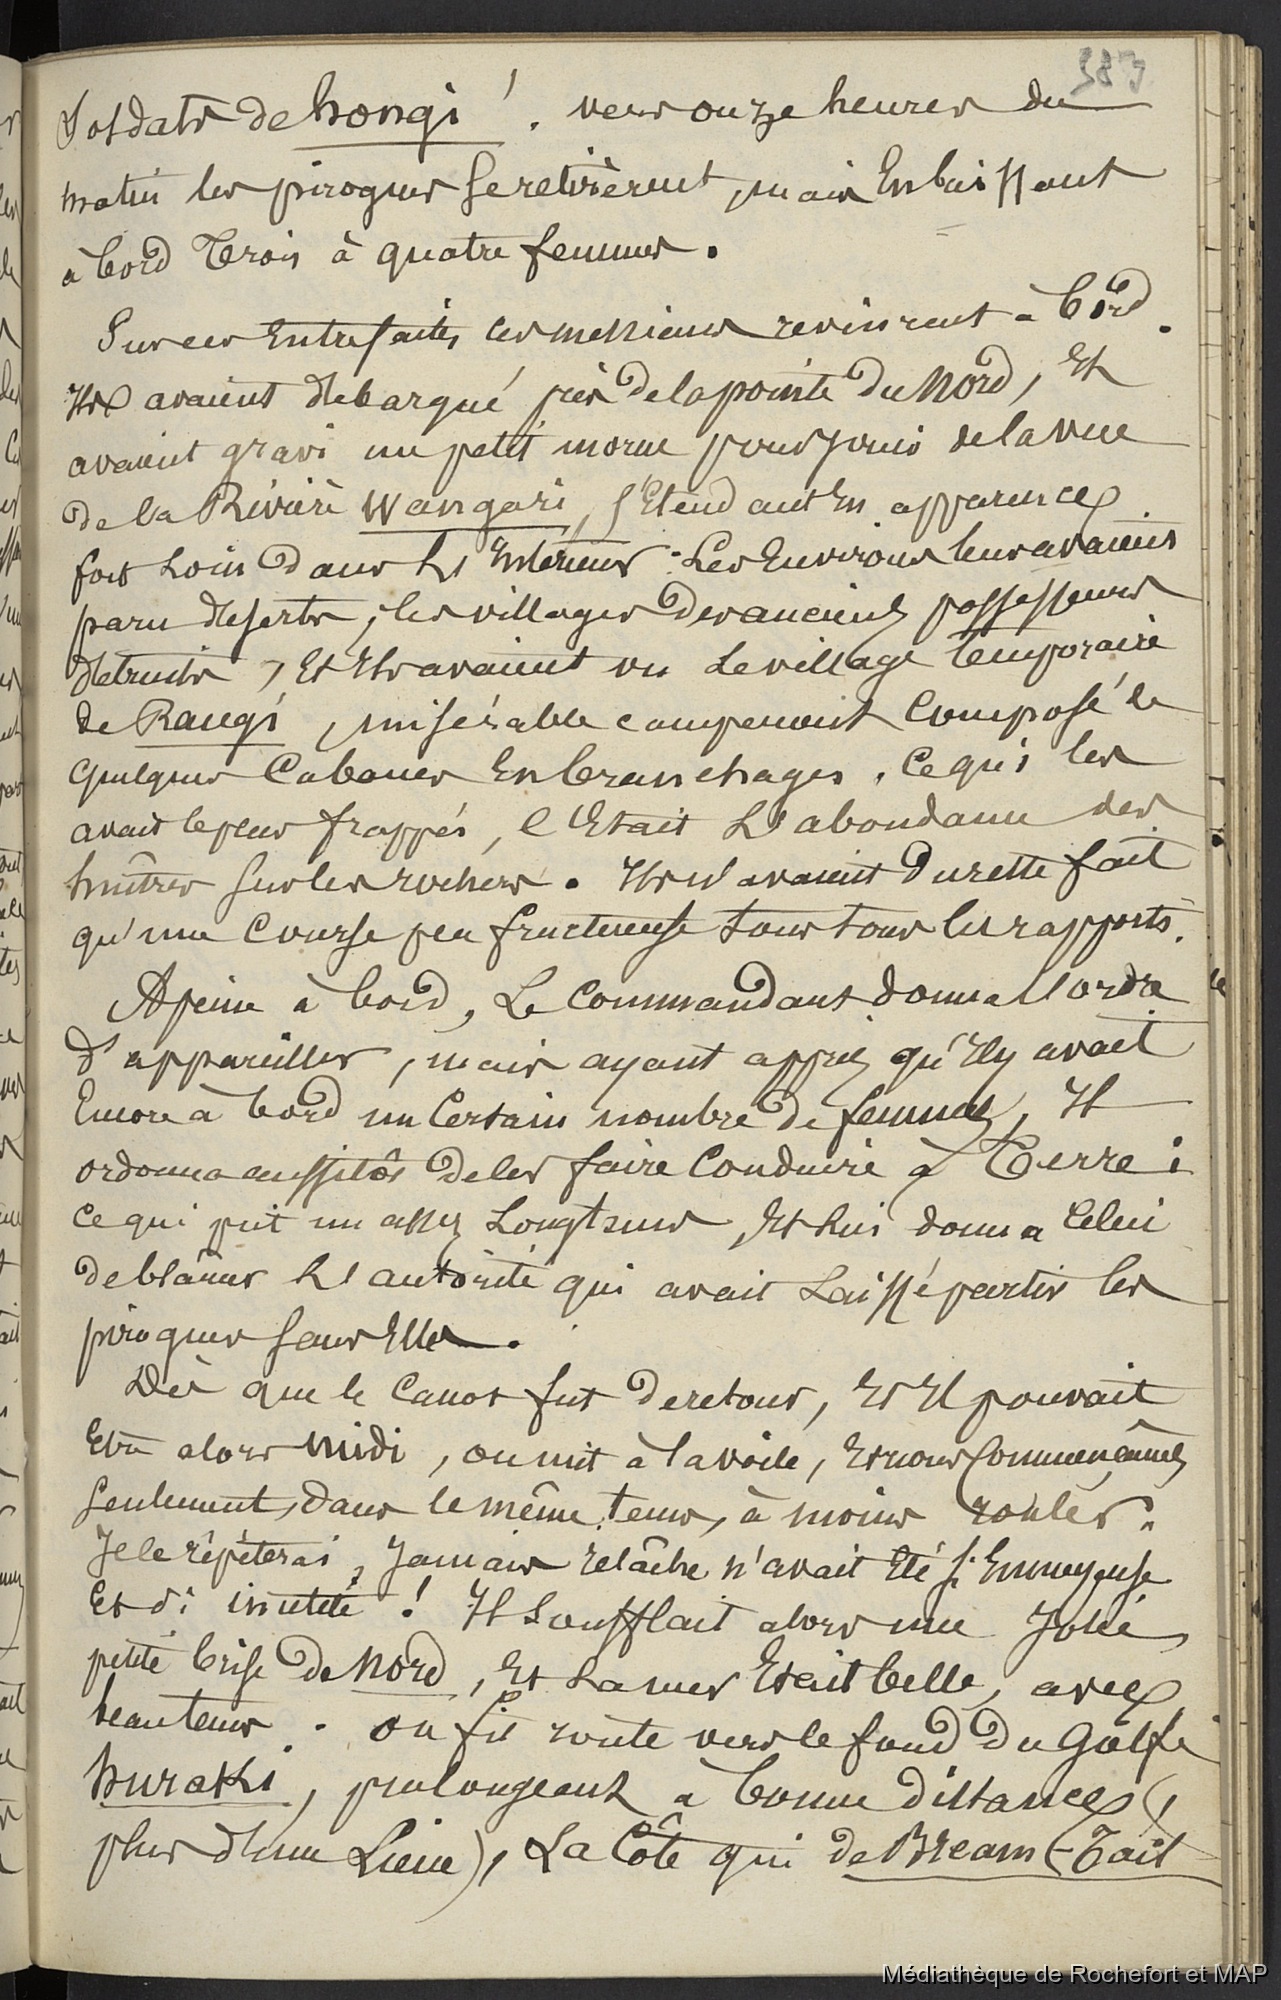 383
Soldats de hongi ! . vers onze heures du
matin les pirogues se retirèrent, mais En laissant
à bord Trois à quatre femmes.
Sur ces Entrefaites ces messieurs revinrent à bord.
Ils avaient débarqué près de la pointe du Nord, Et
avaient gravi un petit morne pour jouir de la vue
de la Rivière Wangari, s'Etendant En apparence
fort Loin dans L'Intérieur. Les Environs leur avaient
paru déserts, les villages des anciens possesseurs
détruits, Et Ils avaient vu Le village temporaire
de Rangi, misérable campement composé de
quelques Cabanes En branchages. Ce qui les
avait le plus frappés, C'Etait L'abondance des
huîtres sur les rochers. Ils n'avaient du reste fait
qu'une Course peu fructueuse sous tous les rapports.
A peine à bord, Le Commandant donna l'ordre
d'appareiller, mais ayant appris qu'Il y avait
Encore à bord un Certain nombre de femmes, Il
ordonna aussitôt de les faire Conduire à Terre ;
Ce qui prit un assez Longtems, Et Lui donna celui
de blâmer L'autorité qui avait Laissé partir les
pirogues sans Elles.
Dès que le Canot fut de retour, Et Il pouvait
Etre alors Midi, on mit à la voile, Et nous Commençâmes
seulement, dans le même tems, à moins rouler.
Je le répèterai, Jamais relâche n'avait Eté si Ennuyeuse
Et si inutile ! Il soufflait alors une Jolie
petite brise de Nord, Et La mer Etait belle, avec
beau tems. on fit route vers le fond du Golfe
hurakki, prolongeant à bonne distance (
plus d'une Lieue), La Côte qui de Bream (-Tail
Médiathèque de Rochefort et MAP